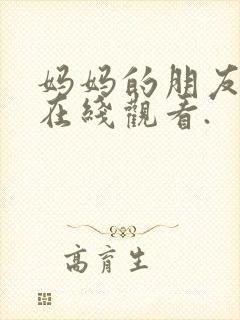 妈妈的朋友
在綫觀看.
高育生